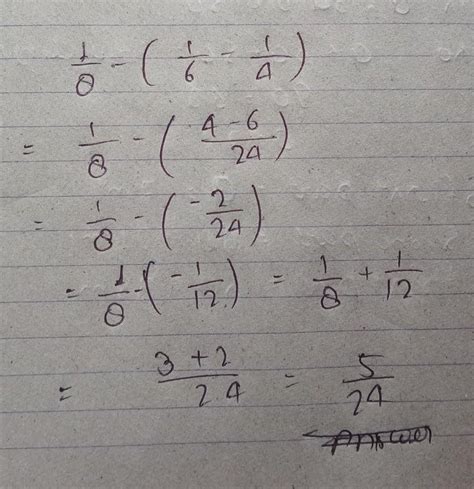 1/8 - ( 1/6 - 1/4 )
= 1/8 - ( 4-6/24 )
= 1/8 - ( -2/24 )
= 1/8 - ( -1/12 ) = 1/8 + 1/12
= 3+2/24 = 5/24
Answer